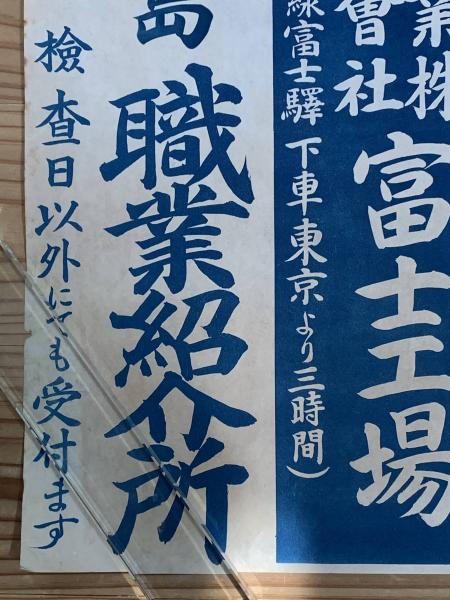 業株
會社
富士工場
線富士驛 下車東京より三時間)
島 職業紹介所
檢査日以外にても受付ます